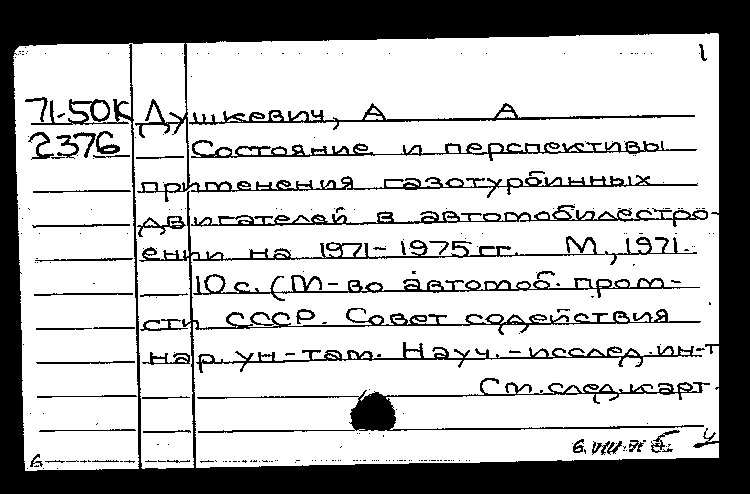 1
71-50К Душкевич, А А
2376 Состояние и перспективы
применения газотурбинных
двигателей в автомобилестро-
ении на 1971-1975 гг. М., 1971.
10 с. (М-во автомоб. пром-
сти СССР. Совет содействия
нар. ун-там. Науч.-исслед. ин-т
См. след. карт.
6